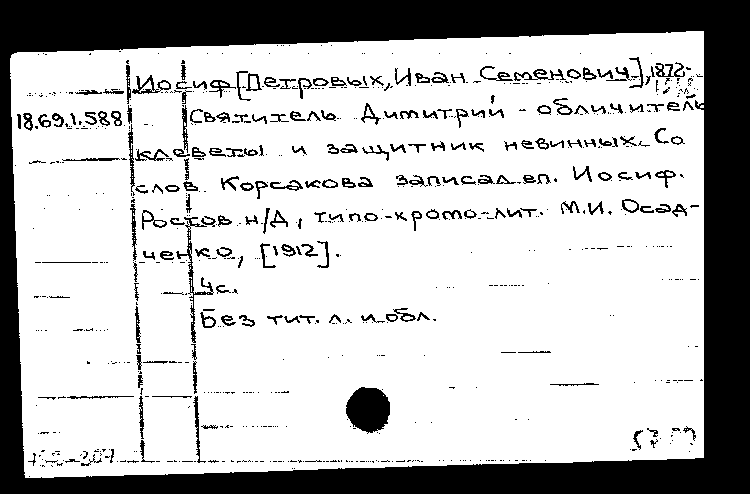 Иосиф [Петровых, Иван Семенович], 1872-
18.69.1.588
Святитель Димитрий - обличитель
клеветы и защитник невинных. Со
слов Корсакова записал еп. Иосиф.
Ростов н/Д, типо-хромо-лит. М.И. Осад-
ченко, [1912].
4с.
Без тит. л. и обл.